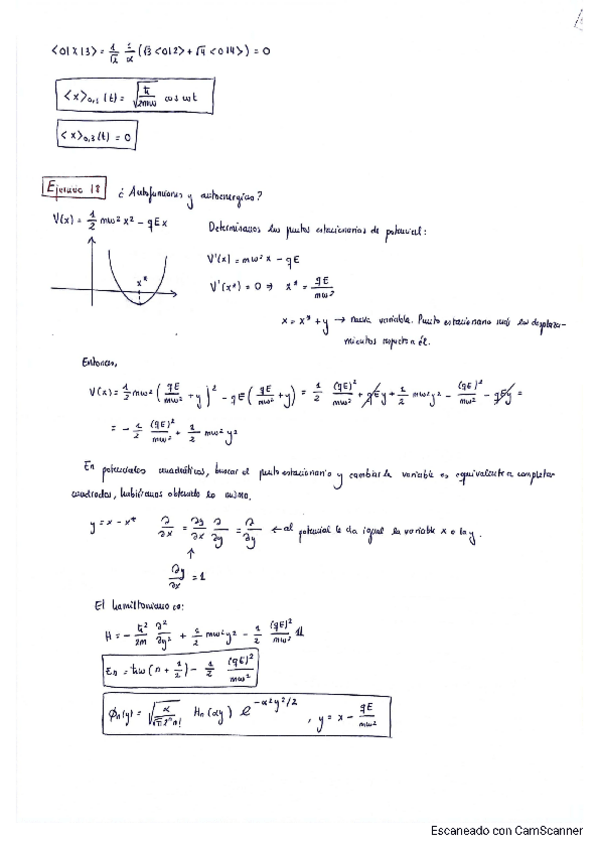 <0|X|3> = 1/√2 1/α (√3 <0|2> + √4 <0|4>) = 0
<x>₀,₁ (t) = √(ħ/2mω) cos ωt
<x>₀,₃ (t) = 0
Ejercicio 18 ¿Autofunciones y autoenergías?
V(x) = 1/2 mω² x² - qEx Determinamos los puntos estacionarios de potencial:
V'(x) = mω² x - qE
x* V'(x*) = 0 ⇒ x* = qE/mω²
x = x* + y → nueva variable. Punto estacionario más los desplaza-
mientos respecto a él.
Entonces,
V(x) = 1/2 mω² (qE/mω² + y)² - qE (qE/mω² + y) = 1/2 (qE)²/mω² + qEy + 1/2 mω²y² - (qE)²/mω² - qEy =
= - 1/2 (qE)²/mω² + 1/2 mω² y²
En potenciales cuadráticos, buscar el punto estacionario y cambiar la variable es equivalente a completar
cuadrados, hubiéramos obtenido lo mismo.
y = x - x* ∂/∂x = ∂y/∂x ∂/∂y = ∂/∂y ← al potencial le da igual la variable x o la y.
↑
∂y/∂x = 1
El hamiltoniano es:
H = - ħ²/2m ∂²/∂y² + 1/2 mω²y² - 1/2 (qE)²/mω² 𝟙
En = ħω (n + 1/2) - 1/2 (qE)²/mω²
ϕn(y) = √(α/√π 2ⁿ n!) Hn (αy) e^(-α²y²/2) , y = x - qE/mω²
Escaneado con CamScanner